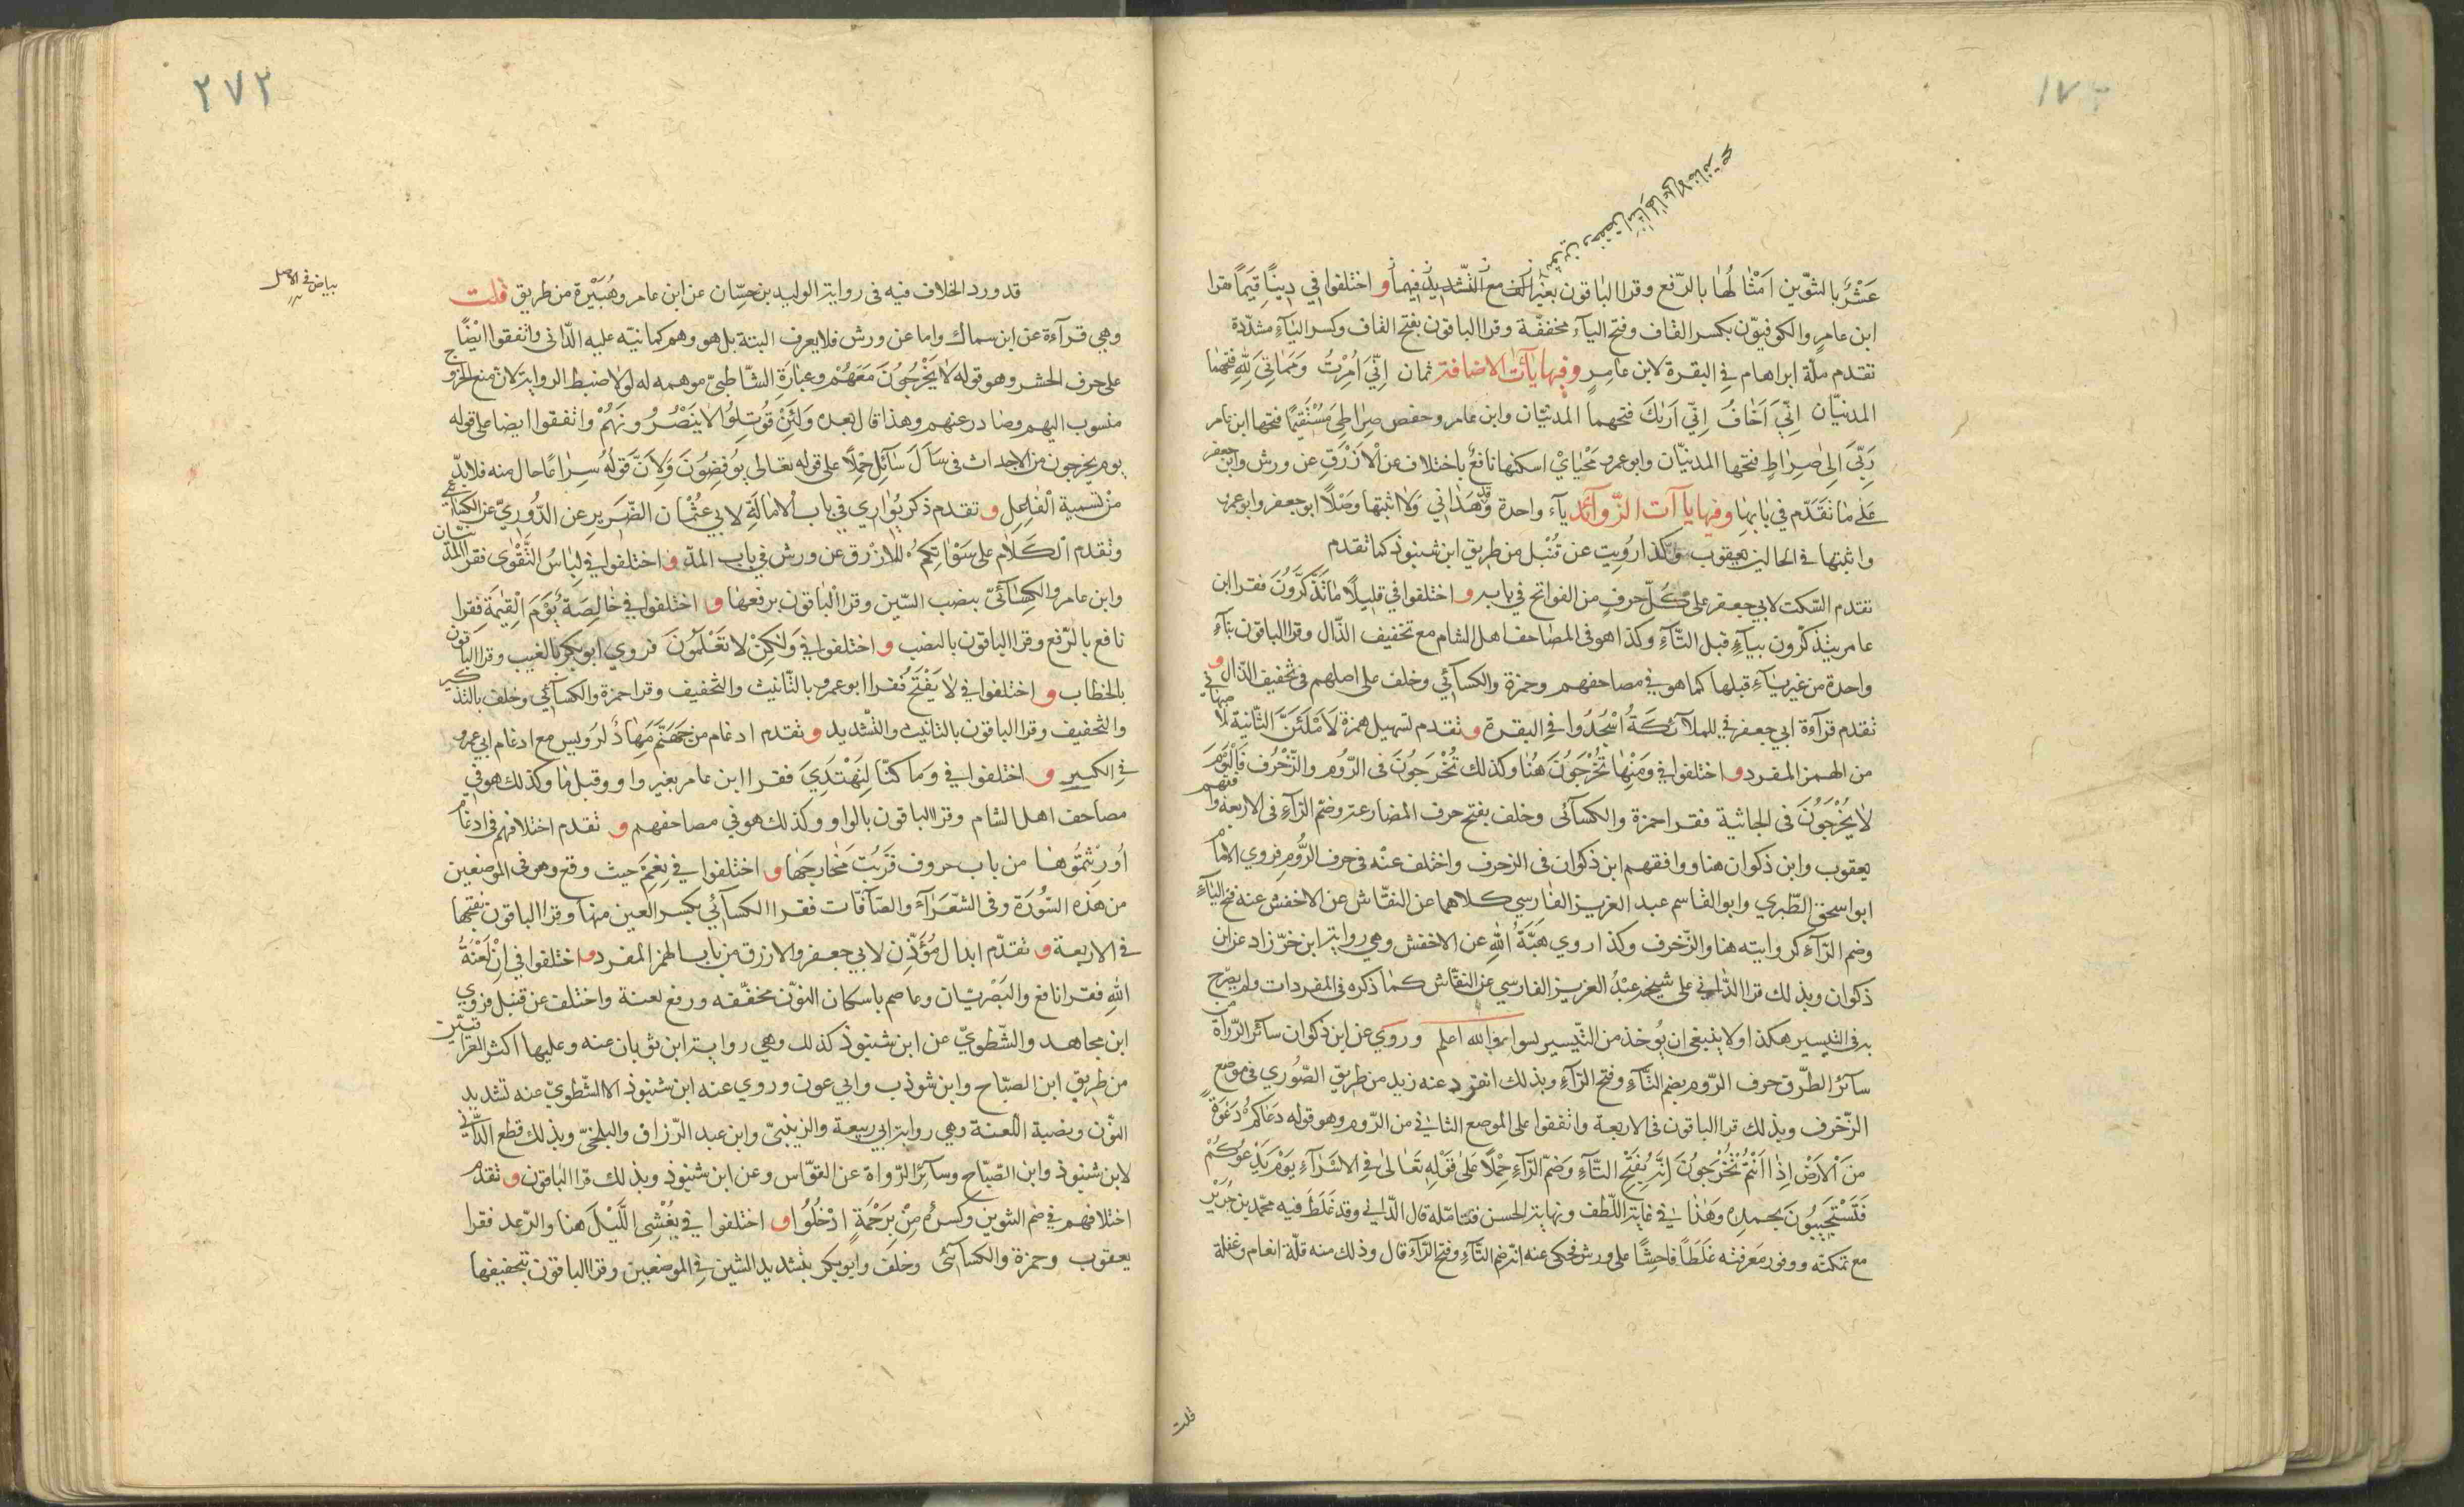 عَشْرٌ بالتنوين اَمْثَالُهَا بالرّفع وقرا الباقون بغير الف مع التشديد فيهما و اختلفوا في دِينًا قِيَمًا فقرا
ابن عامر والكوفيون بكسر القاف وفتح الياء مخففة وقرا الباقون بفتح القاف وكسر الياء مشدّدة
تقدم ملّة ابراهام في البقرة لابن عامر وفيها ياآت الاضافة ثمان اِنِّيَ اُمِرْتُ وَمَمَاتِيَ لِلّٰهِ فتحهما
المدنيّان اِنِّيَ اَخَافُ اِنِّيَ اَرٰيكَ فتحهما المدنيّان وابن عامر وحفص صِرَاطِيَ مُسْتَقِيمًا فتحها ابن عامر
رَبِّيَ اِلٰى صِرَاطٍ فتحها المدنيّان وابوعمرو مَحْيَايْ اسكنها نافع باختلاف عن الازرق عن ورش وابن جعفر
على ما تقدم في بابها وفيها ياآت الزّوائد ياء واحدة وقد هَدَانِي وَلَا اثبتها وصلا ابوجعفر وابوعمرو
واثبتها في الحالين يعقوب وكذا رُويت عن قُنْبل من طريق ابن شنبوذ كما تقدم
تقدم السّكت لابي جعفر على كل حرف من الفواتح في بابه و اختلفوا في قليلا مَا تَذَكَّرُونَ فقرا ابن
عامر يتذكّرون بياء قبل التاء وكذا هو في المصاحف اهل الشام مع تخفيف الذّال وقرا الباقون بتاء
واحدة من غير ياء قبلها كما هو في مصاحفهم وحمزة والكسائي وخلف على اصلهم في تخفيف الذّال و
تقدم قراءة ابي جعفر في للملائكةُ اسْجُدُوا في البقرة و تقدم تسهيل همزة لَاَمْلَئَنَّ الثّانية للاصبهاني في
من الهمز المفرد و اختلفوا في وَمِنْهَا تُخْرَجُونَ هُنا وكذلك تُخْرَجُونَ في الرّوم والزّخرف فَالْيَوْمَ
لَا يُخْرَجُونَ في الجاثية فقرا حمزة والكسائي وخلف بفتح حرف المضارعة وضم الرّاء في الاربعة وافقهم
يعقوب وابن ذكوان هنا ووافقهم ابن ذكوان في الزخرف واختلف عنه في حرف الرُّوم فروى الامام
ابواسحق الطّبري وابوالقاسم عبد العزيز الفارسي كلاهما عن النقّاش عن الاخفش عنه فتح الياء
وضم الرّاء كروايته هنا والزّخرف وكذا روي هبةُ الله عن الاخفش وهي رواية ابن خرّزاد عن ابن
ذكوان وبذلك قرا الدّاني على شيخه عبد العزيز الفارسي عن النقّاش كما ذكره في المفردات ولم يصرّح
به في التيسير هكذا ولا ينبغي ان يُوخذ من التّيسير بسواه والله اعلم وروي عن ابن ذكوان سائر الرّواة من
سائر الطّرق حرف الرّوم بضم التّاء وفتح الرّاء وبذلك انفرد عنه زيد من طريق الصّوري في موضع
الزّخرف وبذلك قرا الباقون في الاربعة واتفقوا على الموضع الثاني من الرّوم وهو قوله دَعَاكُمْ دَعْوَةً
مِنَ الْاَرْضِ اِذَا اَنْتُمْ تَخْرُجُونَ اِنّه بفتح التّاء وضَمّ الرّاء حملا على قوله تعالى في الاسراء يَوْمَ يَدْعُوكُمْ
فَتَسْتَجِيبُونَ بحمده وهذا في غاية اللّطف ونهاية الحسن فتامّله قال الدّاني وقد غَلَطَ فيه محمّد بن جرير
مع تمكنه ووفور معرفته غلطا فاحشا على ورش فحكى عنه انه ضم التّاء وفتح الرّاء قال وذلك منه قلّة انعام وغفلة
قلت
٢٧٢
بياض في الاصل
قد ورد الخلاف فيه في رواية الوليد بن حسّان عن ابن عامر وهُبَيْرة من طريق قلت
وهي قراءة عن ابن سماك واما عن ورش فلا يعرف البتة بل هو وهم كما نبّه عليه الدّاني واتفقوا ايضًا
على حرف الحشر وهو قوله لَا يَخْرُجُونَ مَعَهُمْ وعبارة الشّاطبيّ موهمه له لولا ضبط الرواية لان منع الخروج
منسوب اليهم وصادر عنهم وهذا قال بعده وَلَئِنْ قُوتِلُوا لَا يَنْصُرُونَهُمْ واتفقوا ايضا على قوله
يوم يخرجون من الاجداث في سَاَلَ سَائِل حملا على قوله تعالى يُوفِضُونَ ولانّ قوله سِرَاعًا حال منه فلا بدّ
من تسمية الفاعل و تقدم ذكر يُوَارِي في باب الامالة لابي عثمان الضّرير عن الدُّوريّ عن الكسائي
وتقدم الكلام على سَوْاٰتِكُمْ للازرق عن ورش في باب المدّ و اختلفوا في لِبَاسُ التَّقْوٰى فقرا المدنيّان
وابن عامر والكسائيّ بنصب السّين وقرا الباقون برفعها و اختلفوا في خَالِصَةً يَوْمَ الْقِيٰمَةِ فقرا
نافع بالرّفع وقرا الباقون بالنصب و اختلفوا في وَلٰكِنْ لَا تَعْلَمُونَ فروي ابوبكر بالغيب وقرا الباقون
بالخطاب و اختلفوا في لَا يَفْتَحُ فقرا ابوعمرو بالتّانيث والتخفيف وقرا حمزة والكسائي وخلف بالتذكير
والتخفيف وقرا الباقون بالتانيث والتشديد و تقدم ادغام من جَهَنَّمَ مِهَادٌ لرويس مع ادغام ابي عمرو
في الكبير و اختلفوا في وَمَا كُنَّا لِنَهْتَدِيَ فقرا ابن عامر بغير واو وقبل ما وكذلك هو في
مصاحف اهل الشام وقرا الباقون بالواو وكذلك هو في مصاحفهم و تقدم اختلافهم في ادغام
اُورِثْتُمُوهَا من باب حروف قربت مخارجها و اختلفوا في نِعَمْ حيث وقع وهو في الموضعين
من هذه السُّورَة وفي الشّعراء والصّافّات فقرا الكسائي بكسر العين منها وقرا الباقون بفتحها
في الاربعة و تقدّم ابدال مُؤَذِّن لابي جعفر والازرق من باب الهمز المفرد و اختلفوا في اَنْ لَعْنَةُ
اللهِ فقرا نافع والبَصْريّان وعاصم باسكان النوّن مخفّفه ورفع لعنة واختلف عن قنبل فروي
ابن مجاهد والشّطويّ عن ابن شنبوذ كذلك وهي رواية ابن ثوبان عنه وعليها اكثر العراقيين
من طريق ابن الصبّاح وابن شوذب وابي عون وروي عنه ابن شنبوذ الا الشّطويّ عنه تشديد
النّون ونصبة اللّعنة وهي رواية ابي ربيعة والزينبيّ وابن عبد الرّزاق والبلخيّ وبذلك قطع الدّاني
لابن شنبوذ وابن الصّبّاح وسائر الرّواة عن القوّاس وعن ابن شنبوذ وبذلك قرا الباقون و تقدم
اختلافهم في ضم التنوين وكسره مِنْ بِرَحْمَةٍ ادْخُلُوا و اختلفوا في يُغْشِي اللَّيْلَ هنا والرّعد فقرا
يعقوب وحمزة والكسائيّ وخلف وابوبكر بتشديد الشين في الموضعين وقرا الباقون بتخفيفها